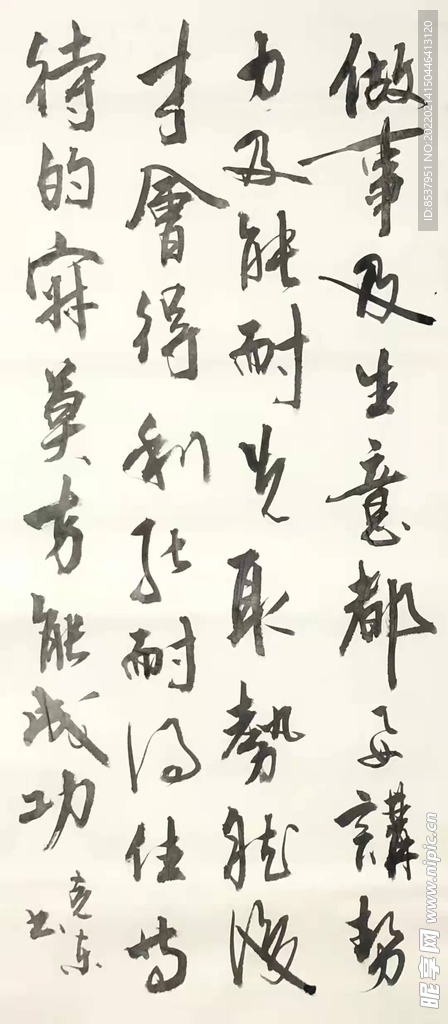 做事及生意都要講勢
力及能耐先取勢然後
才會得利能耐得住等
待的寂莫方能成功
东书
ID:8537951 NO:20220214150446413120
昵享网 www.nipic.cn